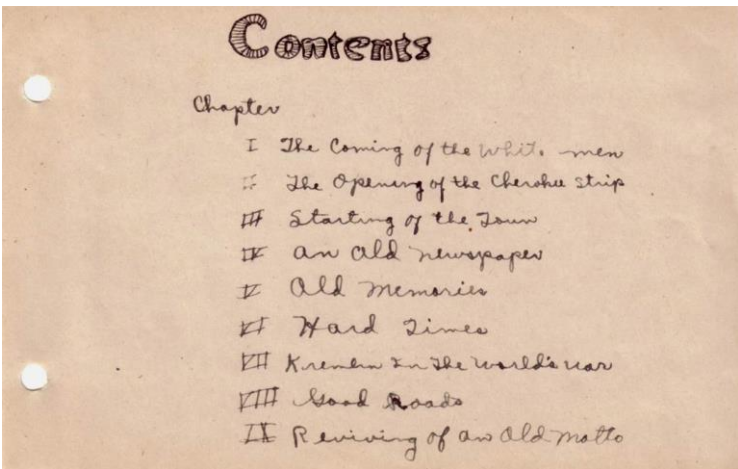 Contents
Chapter
I The Coming of the White men
II The Opening of the Cherokee Strip
III Starting of the Town
IV An Old newspaper
V Old Memories
VI Hard Times
VII Kremlin In The World's War
VIII Good Roads
IX Reviving of an Old Motto